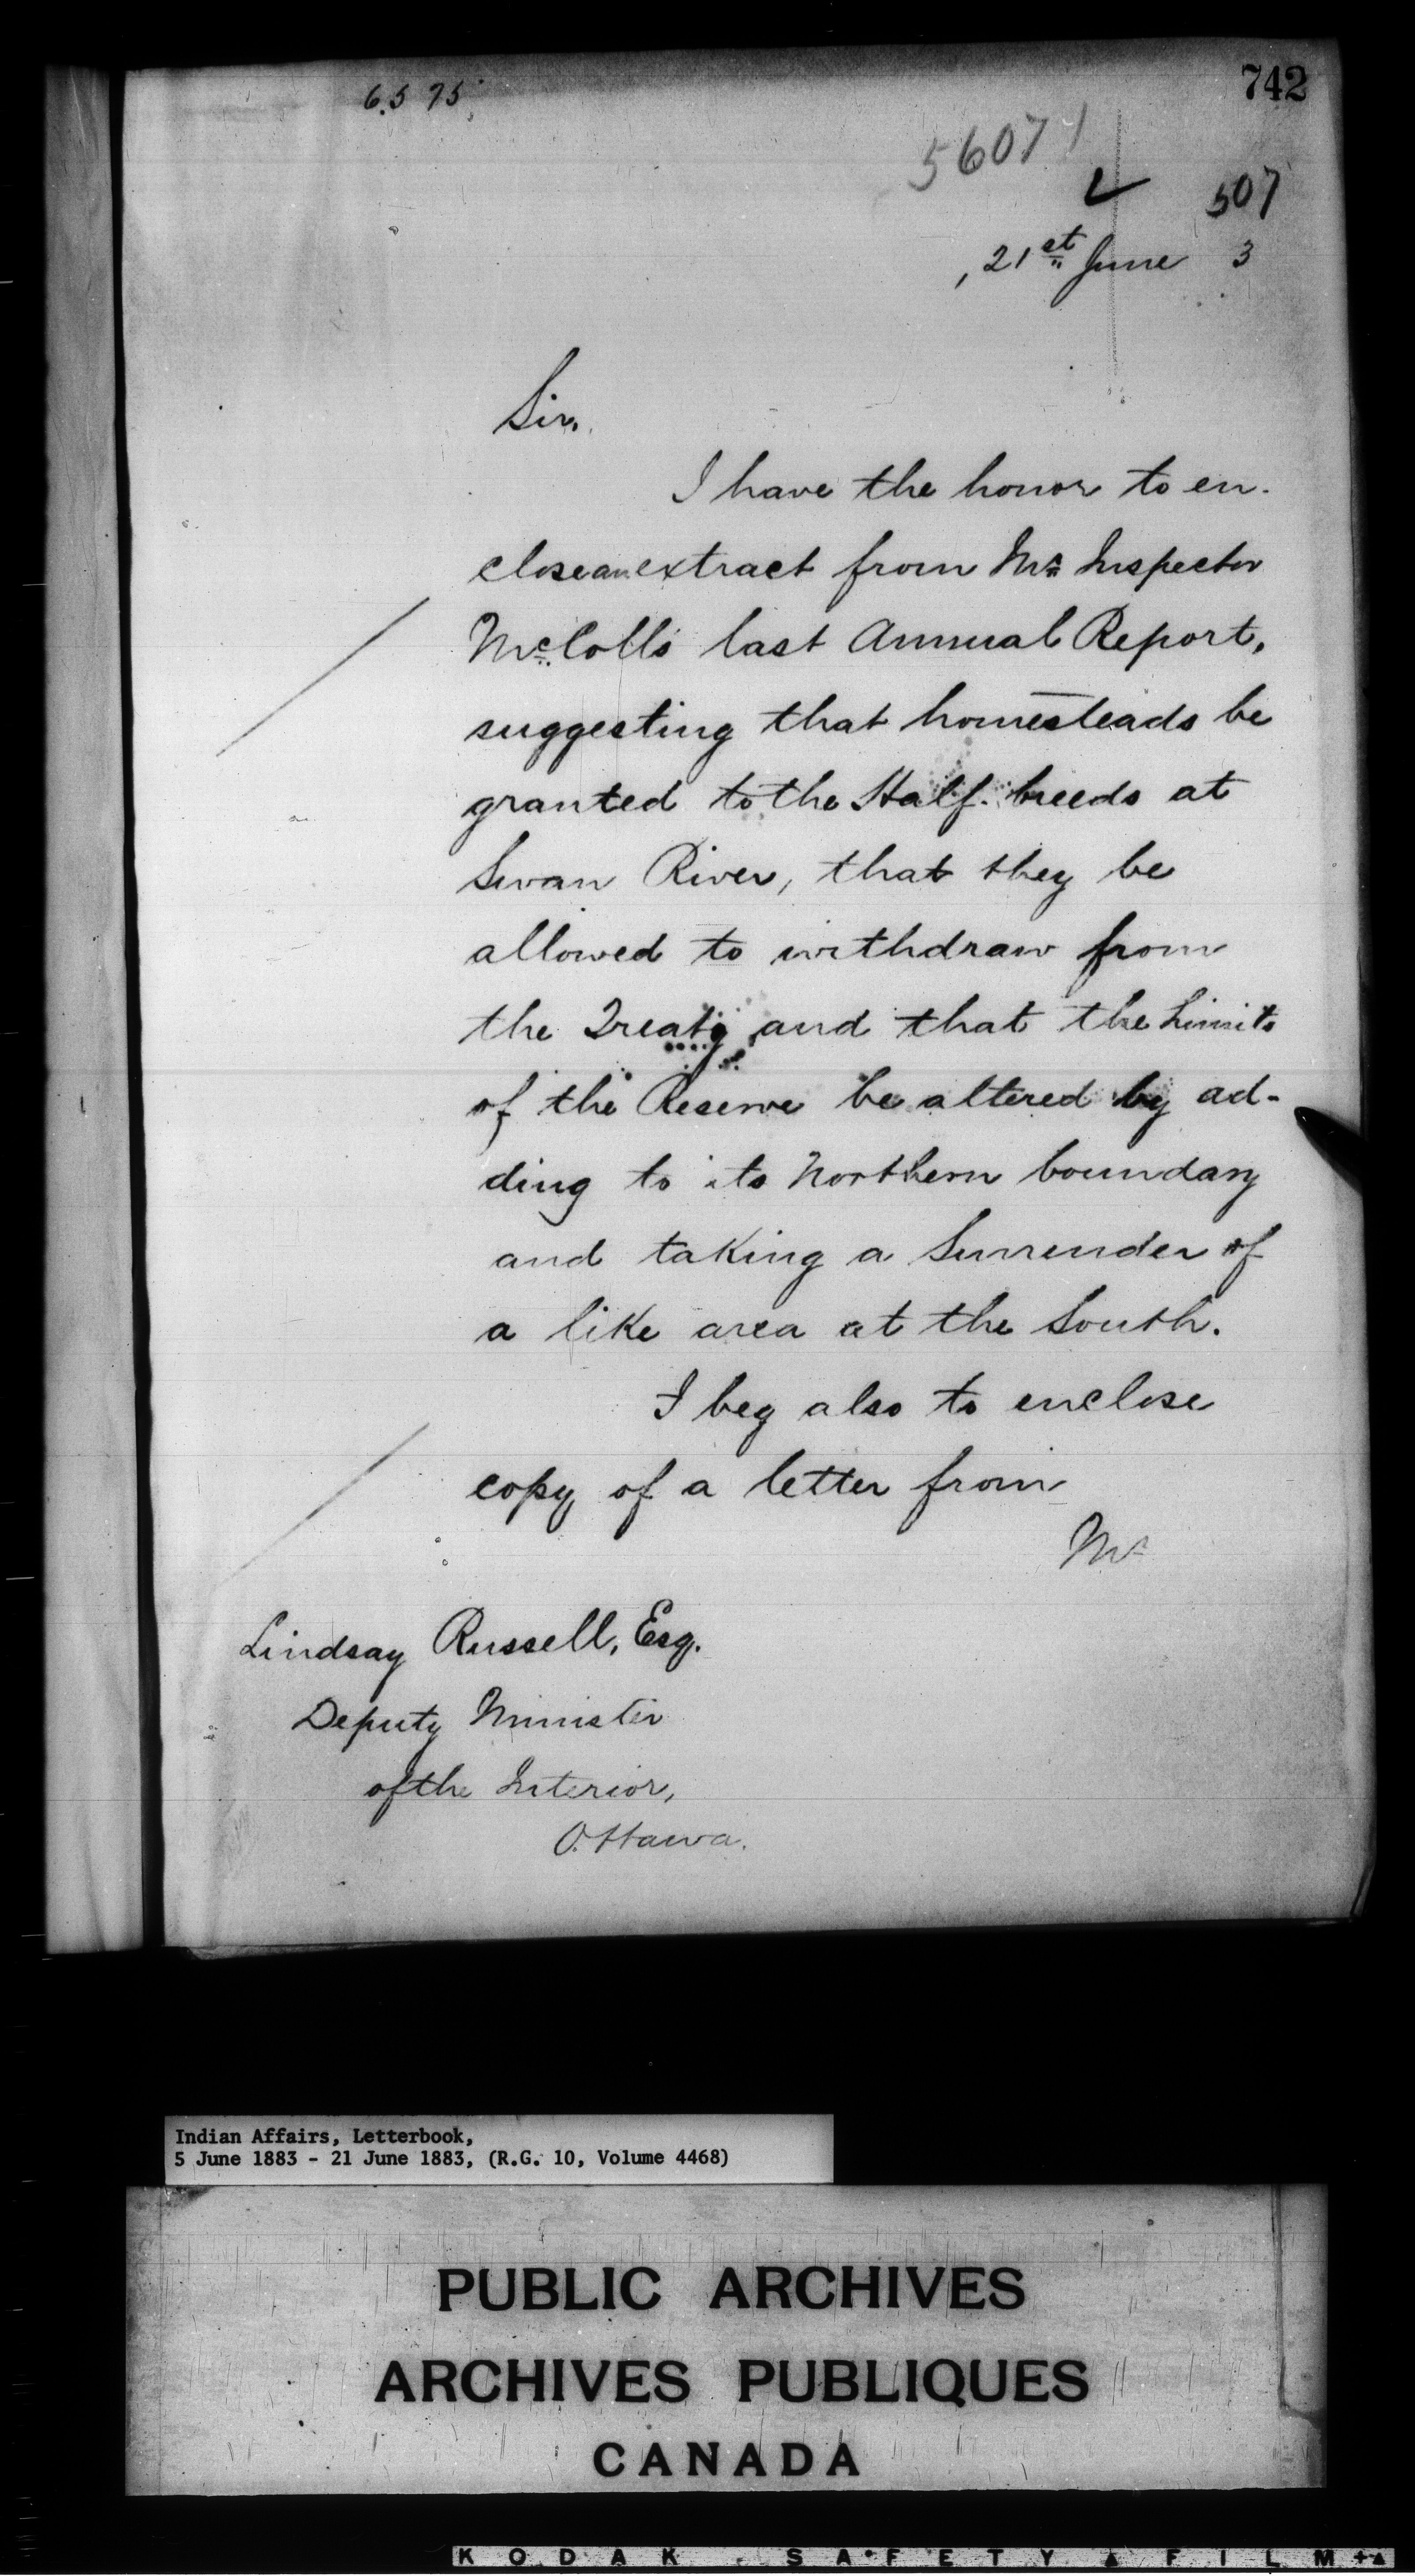 742
6575
56071
507
21st June 3
Sir.
I have the honor to en-
close an extract from Mr. Inspector
McColls last Annual Report,
suggesting that homesteads be
granted to the Half-breeds at
Swan River, that they be
allowed to withdraw from
the Treaty and that the Limits
of the Reserve be altered by ad-
ding to its Northern boundary
and taking a Surrender of
a like area at the South.
I beg also to enclose
copy of a letter from
Mr
Lindsay Russell, Esq.
Deputy Minister
of the Interior,
Ottawa.
Indian Affairs, Letterbook,
5 June 1883 - 21 June 1883, (R.G. 10, Volume 4468)
PUBLIC ARCHIVES
ARCHIVES PUBLIQUES
CANADA
KODAK SAFETY FILM